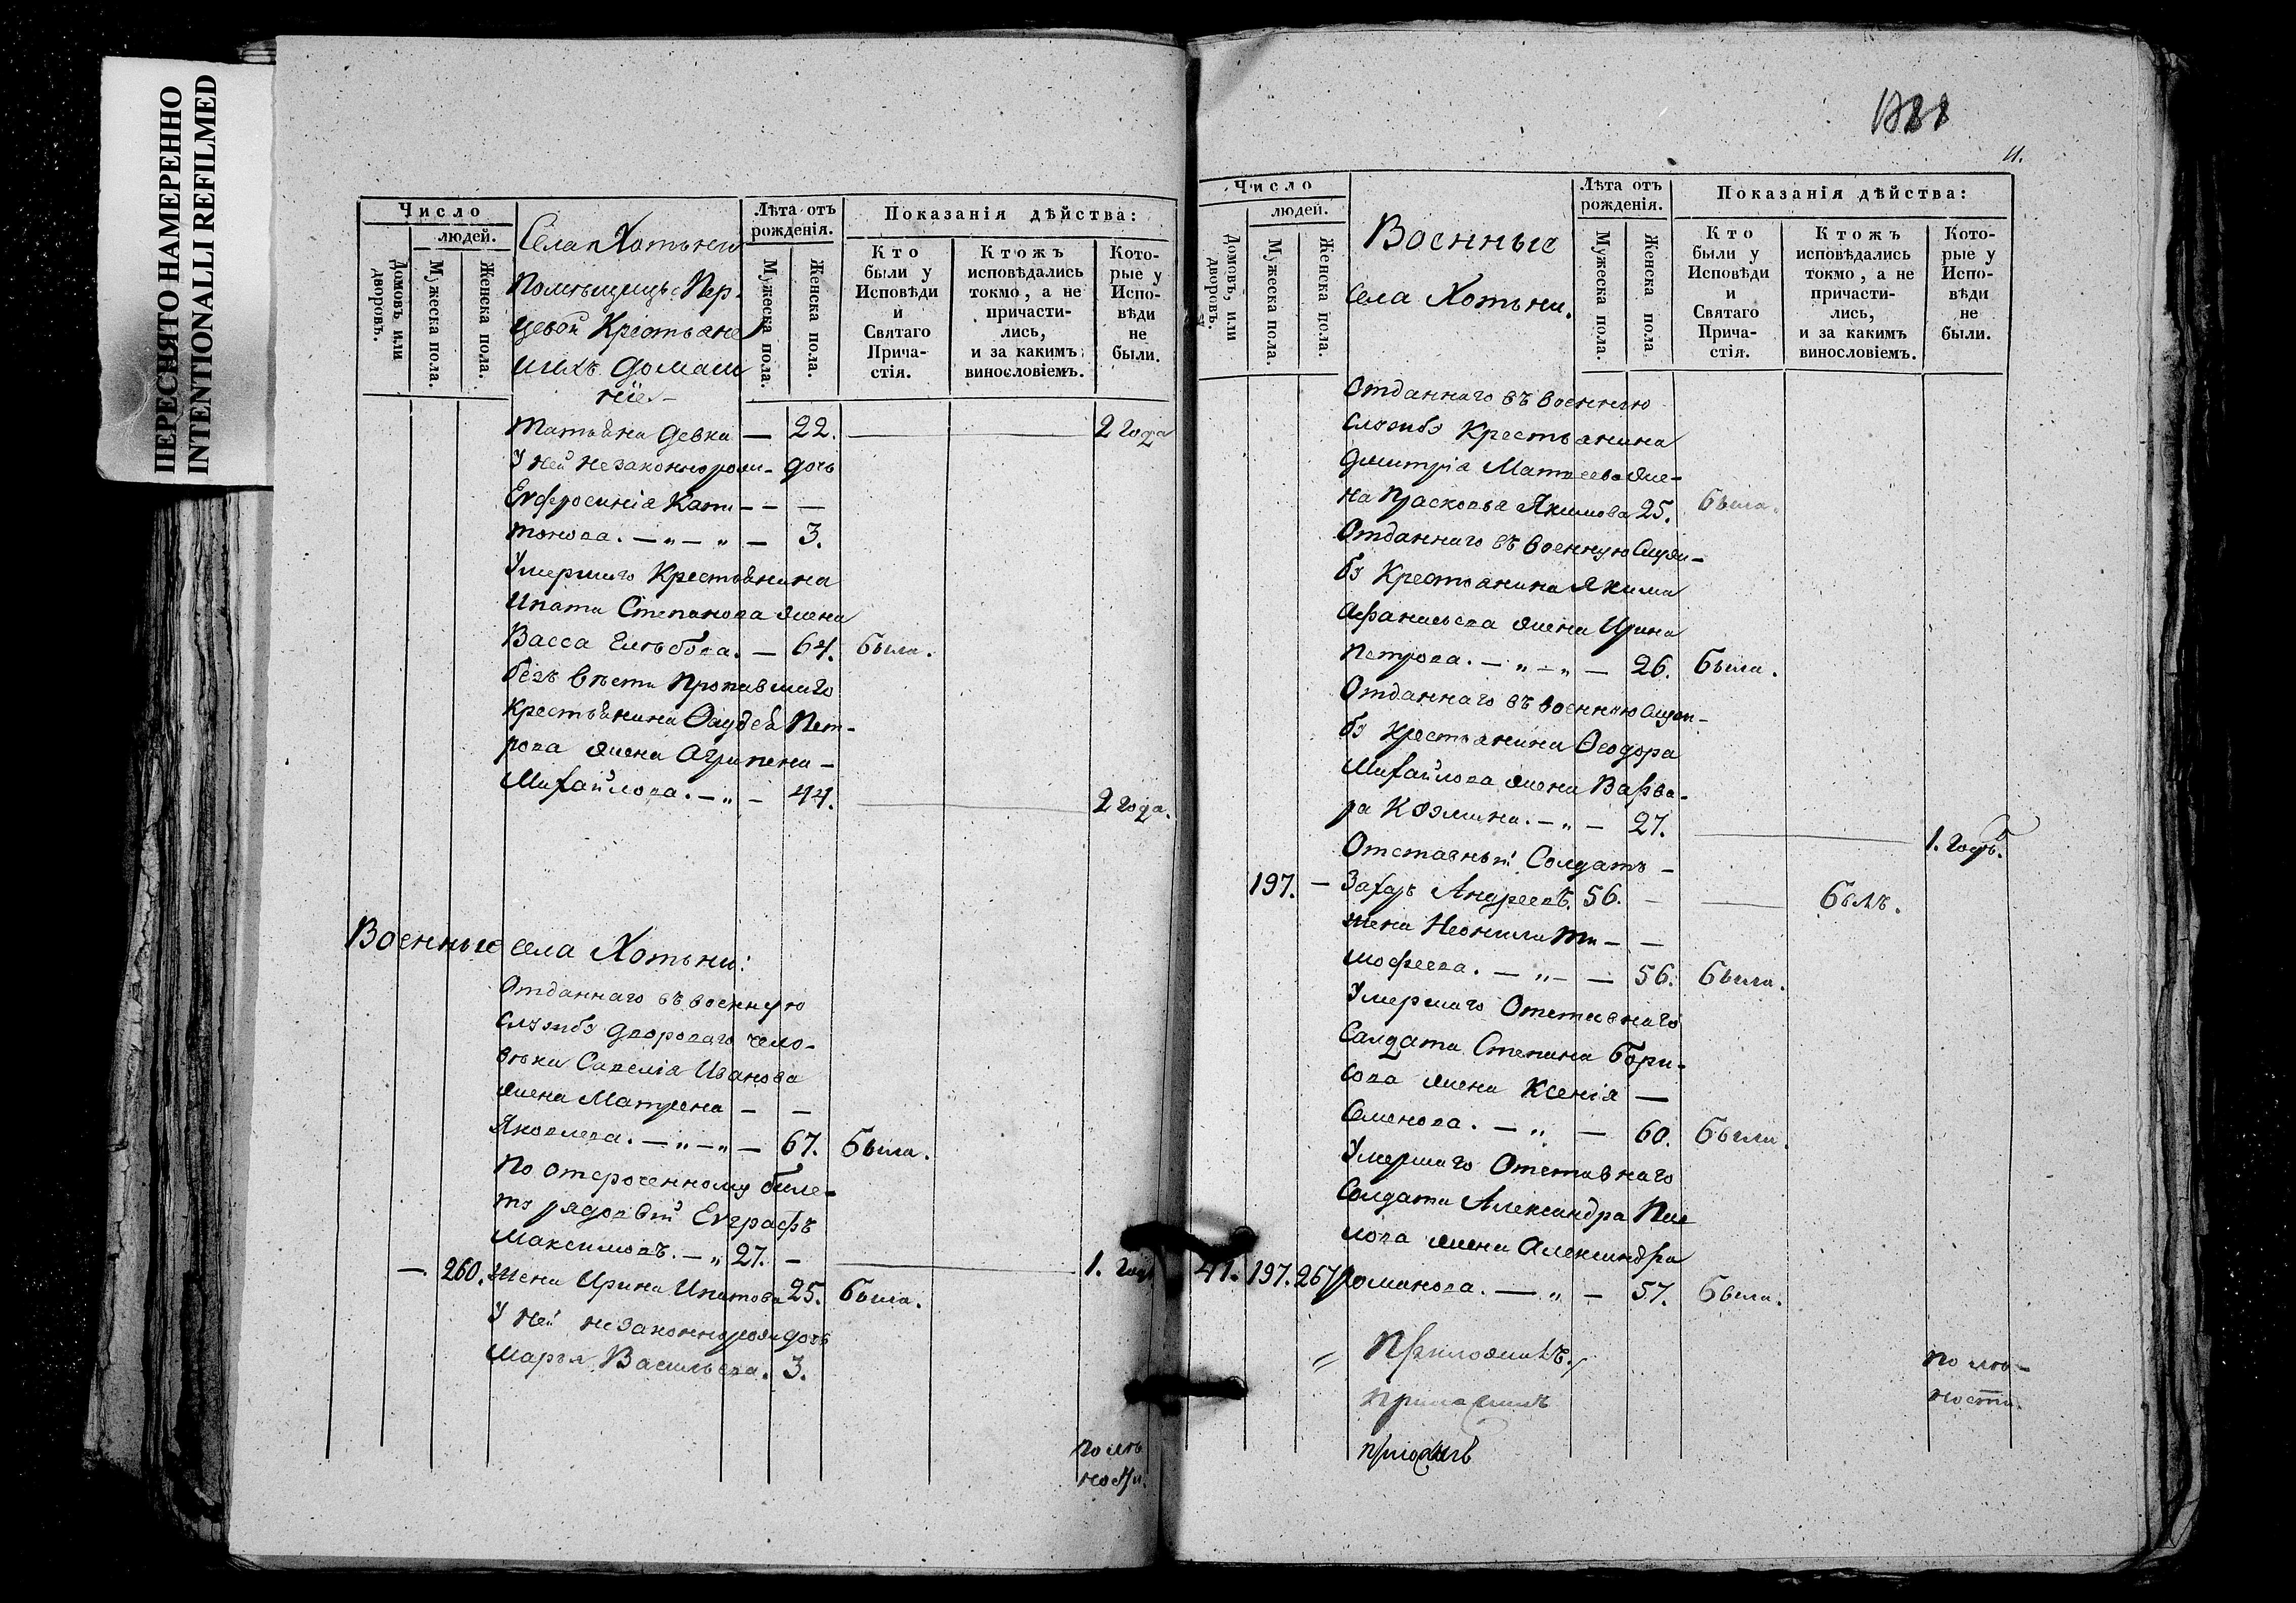 ПЕРЕСНЯТО НАМЕРЕННО
INTENTIONALLI REFILMED
Число
людей.
Домовъ, или дворовъ.
Мужеска пола.
Женска пола.
Села Хотьни
Помѣщицы Пер-
цевой Крестьяне
ихъ домаш
ніе
Лѣта отъ рожденія.
Мужеска пола.
Женска пола.
Показанія дѣйства:
Кто были у Исповѣди и Святаго Прича-стія.
Ктожъ исповѣдались токмо, а не причасти-лись, и за какимъ винословіемъ.
Кото-рые у Испо-вѣди не были.
Татьяна девка — 22. 2 года
У ней незаконнорож- дочь
Евфросинія Капи- - —
тонова. — „ — „ — 3.
Умершаго Крестьянина
Ипата Степанова жена
Васса Глѣбова. — 64. была.
безъ вѣсти пропавшаго
Крестьянина Фаддея Пет-
рова жена Агрипена —
Михайлова. — „ — 44. 2 года.
Военные села Хотьни:
Отданнаго въ военную
службу двороваго чело-
вѣка Савелія Иванова
жена Матрена — —
Яковлева. — „ — „ — 67. была.
По отсроченному биле-
ту рядовой Евграфъ
Максимовъ. — „ 27. — 1. годъ
— 260. жена Ирина Ипатова 25. была.
У ней незаконнорож дочь
Марья Васильева. 3.
по мло
ности.
1888
11.
Число
людей.
Домовъ, или дворовъ.
Мужеска пола.
Женска пола.
Военные
села Хотьни.
Лѣта отъ рожденія.
Мужеска пола.
Женска пола
Показанія дѣйства:
Кто были у Исповѣди и Святаго Прича-стія.
Ктожъ исповѣдались токмо, а не причасти-лись, и за какимъ винословіемъ.
Кото-рые у Испо-вѣди не были.
Отданнаго въ военную
службу Крестьянина
Дмитрія Матвеева же-
на Прасковья Якимова 25. была.
Отданнаго въ военную служ-
бу Крестьянина Якима
Афанасьева жена Ирина
Петрова. — „ — „ — 26. была.
Отданнаго въ военную служ-
бу крестьянина Ѳеодора
Михайлова жена Варва-
ра Козмина. — „ — 27. 1. годъ.
Отставный Солдатъ —
197. — Захаръ Андреевъ. 56. — былъ.
жена Неонила Ти — —
мофеева. — „ — — 56. была.
Умершаго Отставнаго
Салдата Степана Бори-
сова жена Ксенія —
Семенова. — „ — 60. была.
Умершаго Отставнаго
Солдата Александра Пав
лова жена Александра
41. 197. 267 Романова. — „ — 57. была.
по мло-
ности.